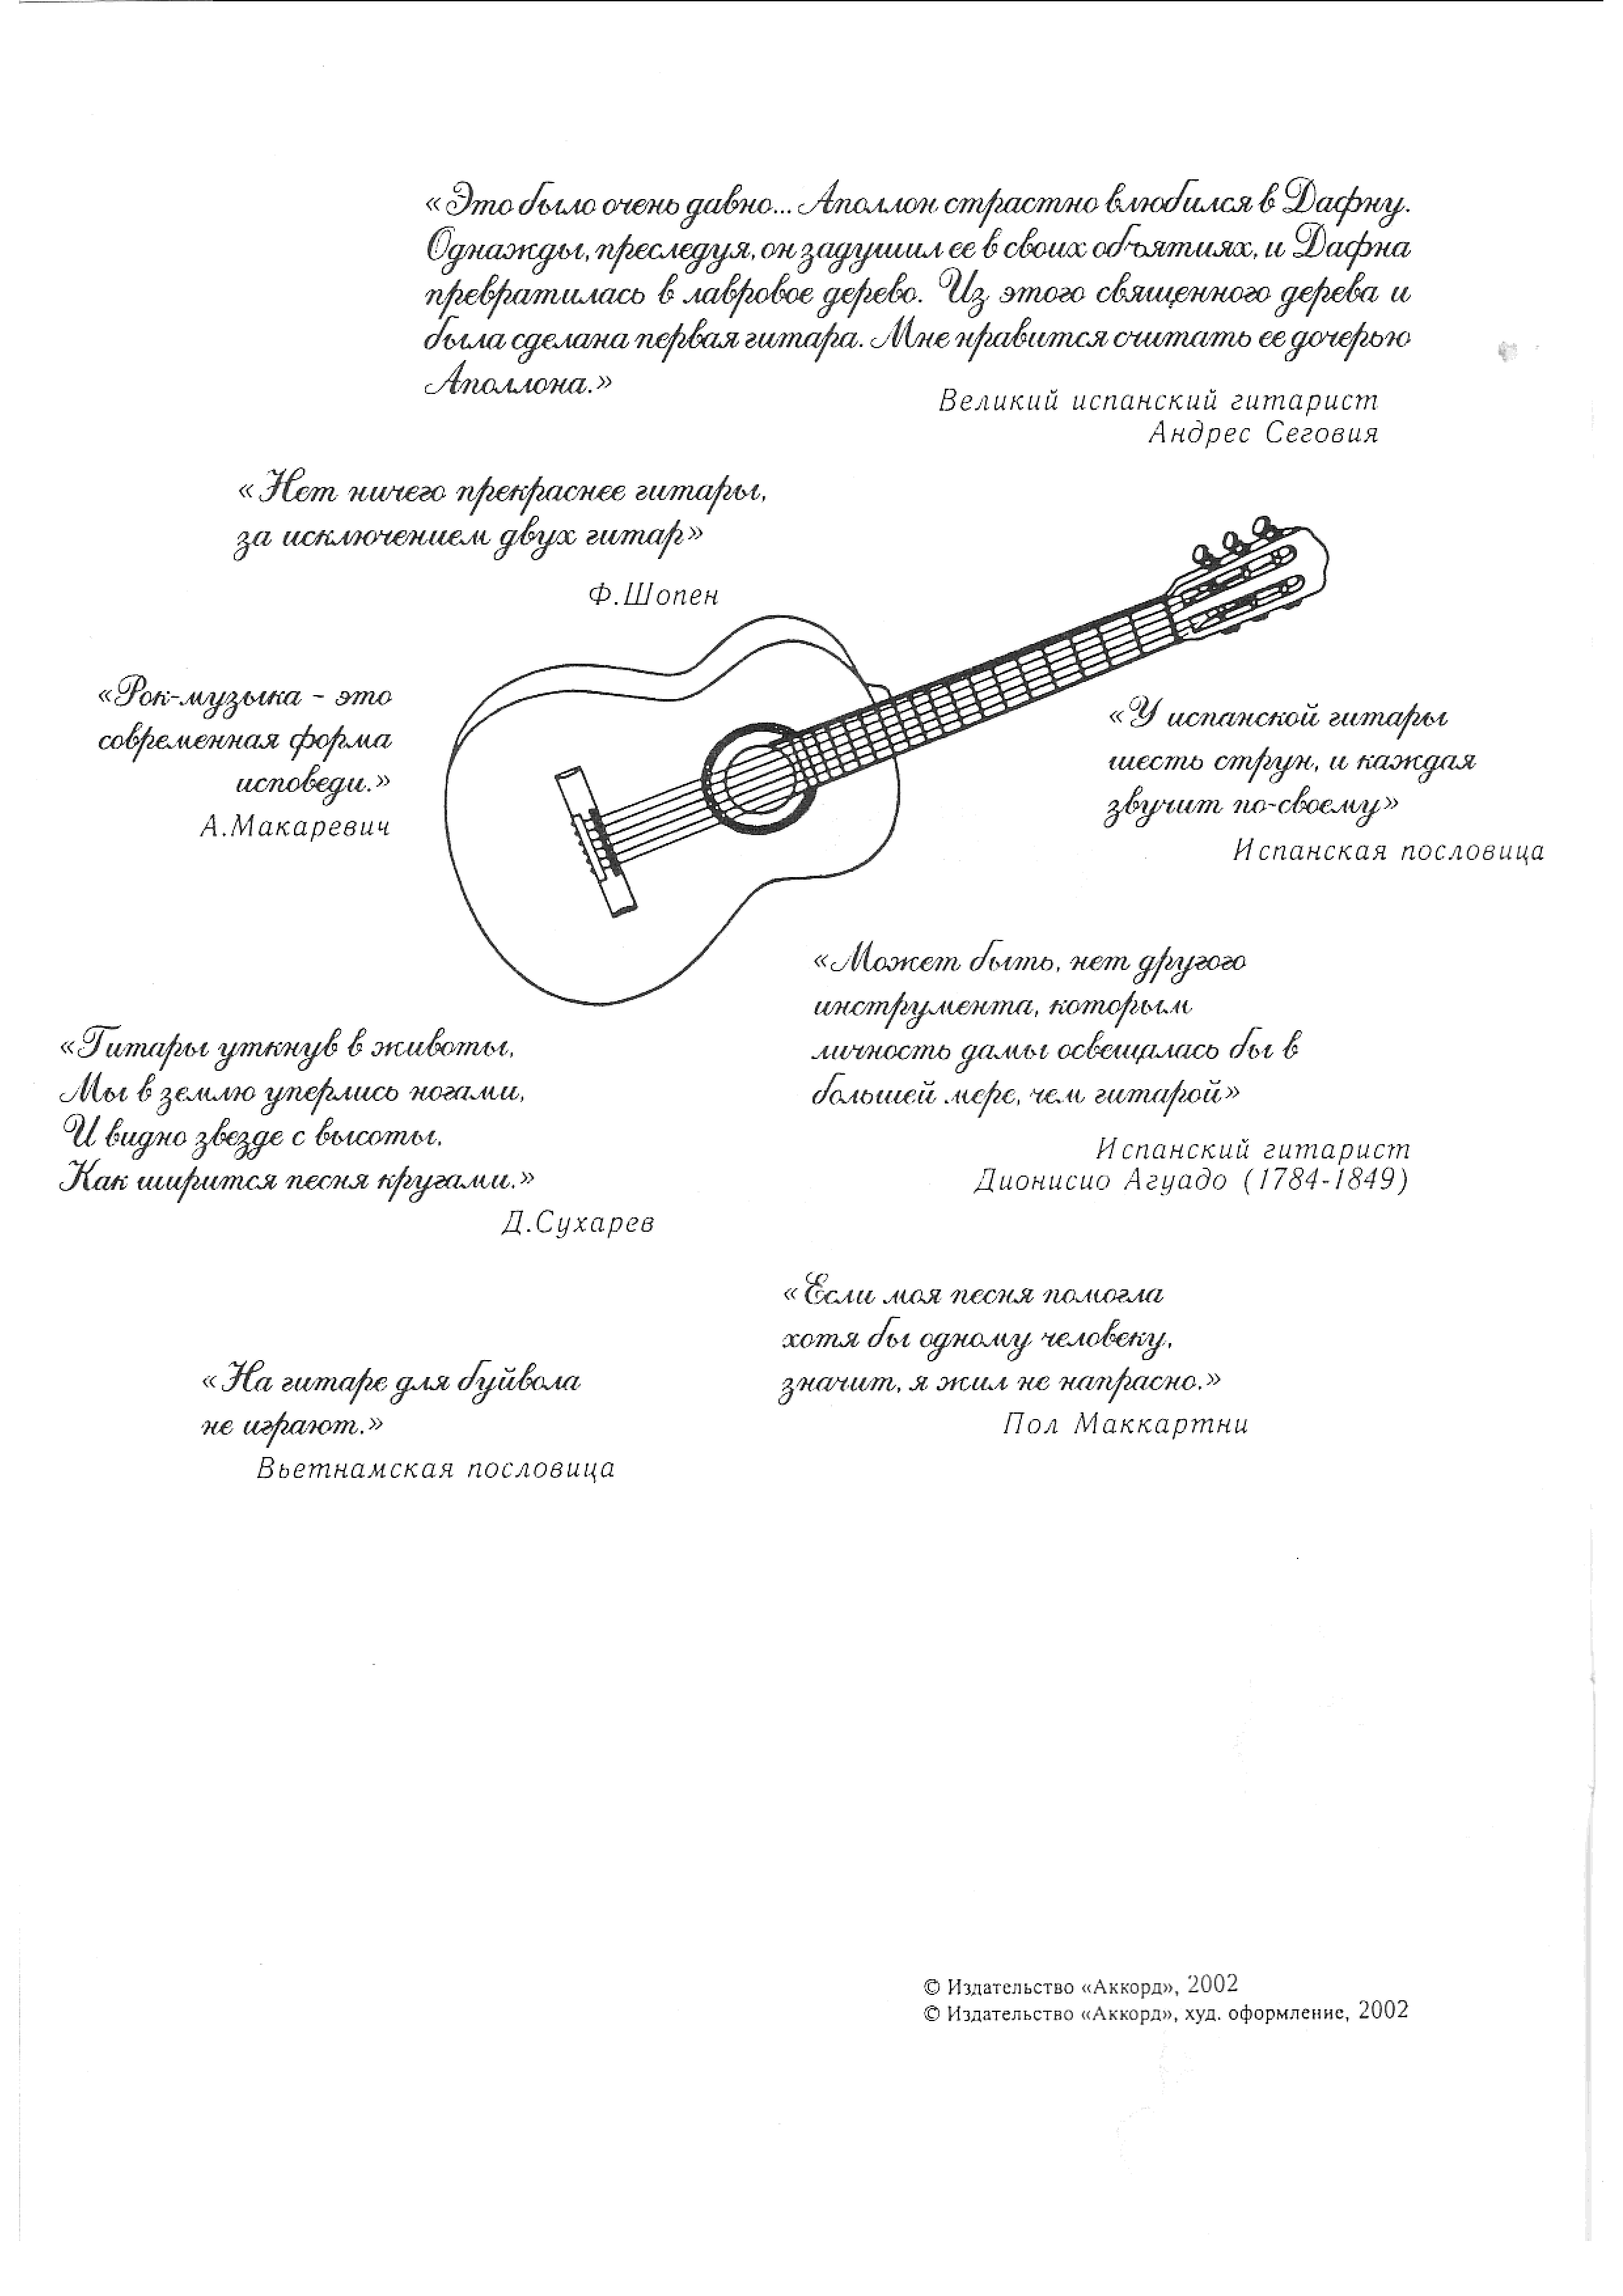 «Это было очень давно... Аполлон страстно влюбился в Дафну.
Однажды, преследуя, он задушил ее в своих объятиях, и Дафна
превратилась в лавровое дерево. Из этого священного дерева и
была сделана первая гитара. Мне нравится считать ее дочерью
Аполлона.»
Великий испанский гитарист
Андрес Сеговия
«Нет ничего прекраснее гитары,
за исключением двух гитар»
Ф.Шопен
«Рок-музыка - это
современная форма
исповеди.»
А.Макаревич
«У испанской гитары
шесть струн, и каждая
звучит по-своему»
Испанская пословица
«Может быть, нет другого
инструмента, которым
личность дамы освещалась бы в
большей мере, чем гитарой»
Испанский гитарист
Дионисио Агуадо (1784-1849)
«Гитары уткнув в животы,
Мы в землю уперлись ногами,
И видно звезде с высоты,
Как ширится песня кругами.»
Д.Сухарев
«Если моя песня помогла
хотя бы одному человеку,
значит, я жил не напрасно.»
Пол Маккартни
«На гитаре для буйвола
не играют.»
Вьетнамская пословица
© Издательство «Аккорд», 2002
© Издательство «Аккорд», худ. оформление, 2002